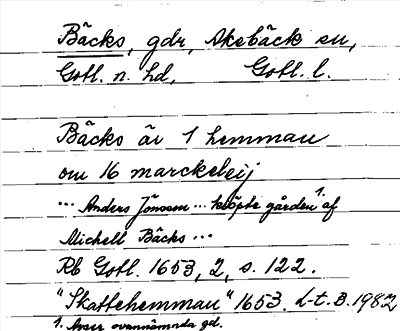 Bäcks, gdr, Akebäck sn,
Gotl. n. hd, Gotl. l.
Bäcks är 1 hemman
om 16 marckeleij
... Anders Jönsson ... köpte gården 1. af
Michell Bäcks ...
Rb Gotl. 1653, 2, s. 122.
"Skattehemman" 1653. L-t. B. 1982
1. Avser ovannämnda gd.